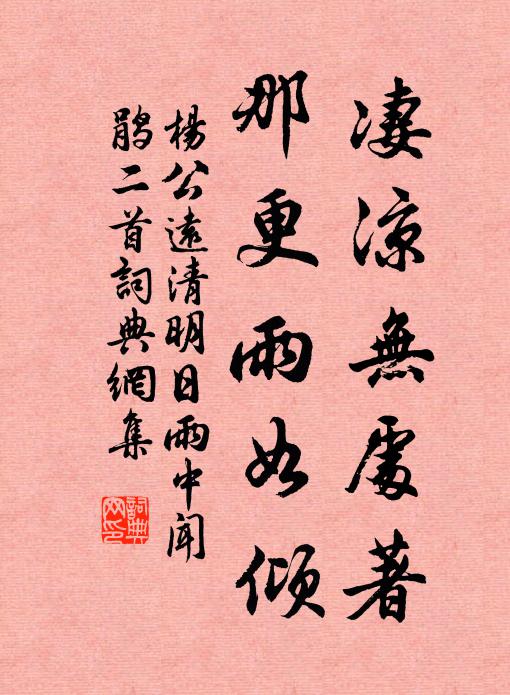 凄涼無處著
那更雨如傾
楊公遠清明日雨中闻
鹃二首詞典網集
詞典
网印